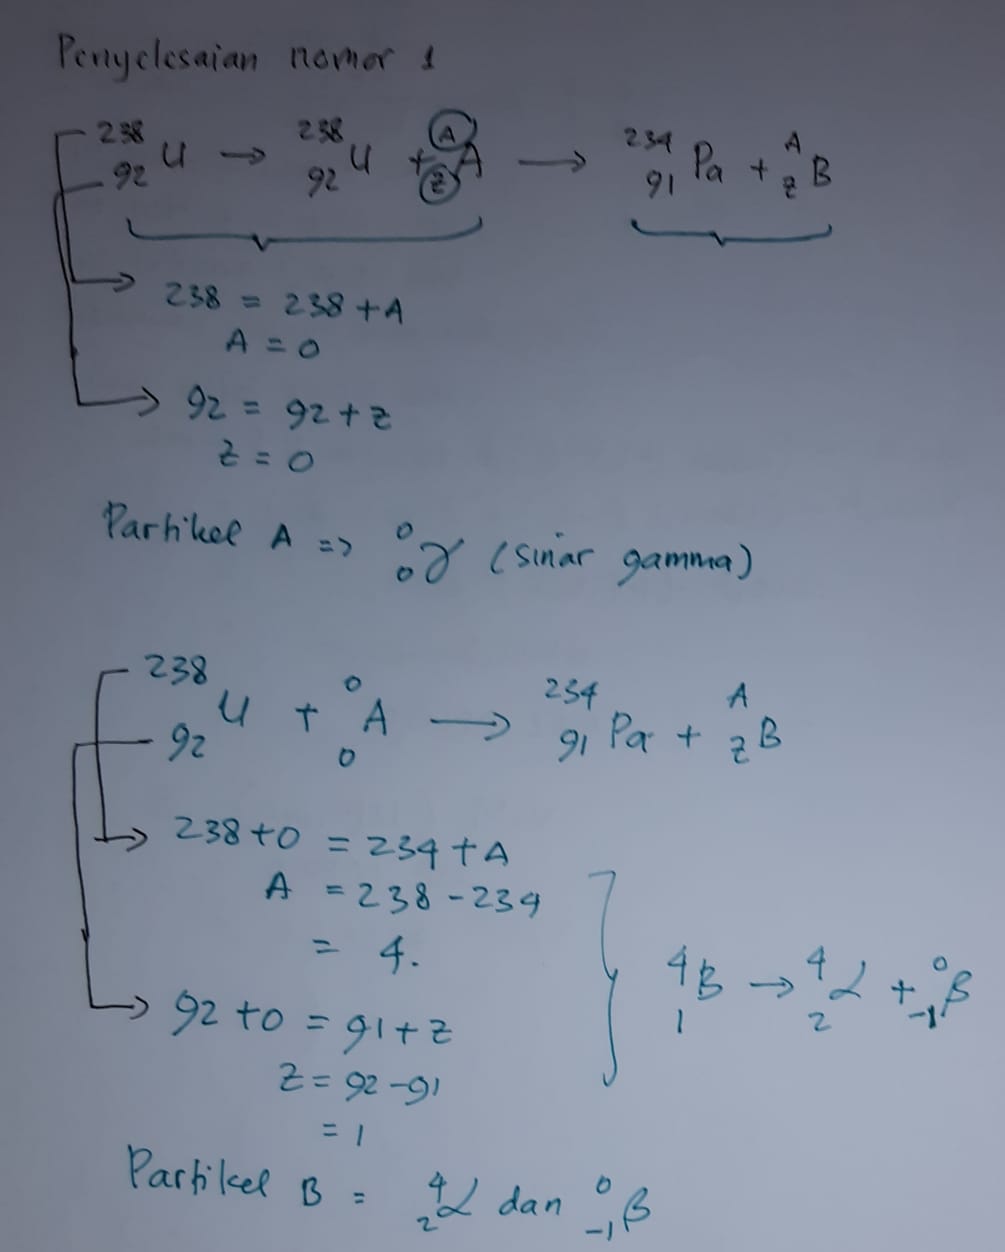 Penyelesaian nomor 1
²³⁸₉₂U → ²³⁸₉₂U + ᴬ_zA → ²³⁴₉₁Pa + ᴬ_zB
238 = 238 + A
A = 0
92 = 92 + z
z = 0
Partikel A => ⁰₀γ (sinar gamma)
²³⁸₉₂U + ⁰₀A → ²³⁴₉₁Pa + ᴬ_zB
238 + 0 = 234 + A
A = 238 - 234
= 4.
⁴₁B → ⁴₂α + ⁰₋₁β
92 + 0 = 91 + z
z = 92 - 91
= 1
Partikel B = ⁴₂α dan ⁰₋₁β